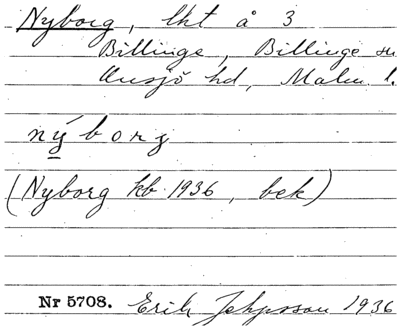 Nyborg, lht å 3
Billinge, Billinge sn
Onsjö hd, Malm l.
nýborg
(Nyborg kb 1936, bek)
Nr 5708. Erik Jeppsson 1936